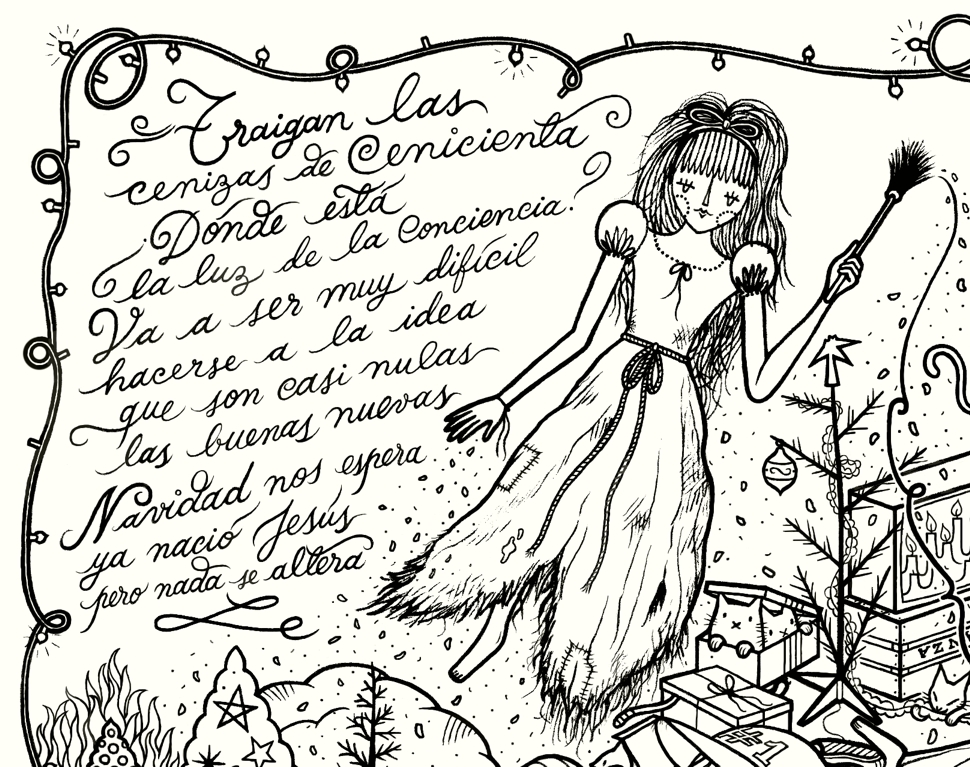 Traigan las
cenizas de Cenicienta
Dónde está
la luz de la Conciencia?
Va a ser muy difícil
hacerse a la idea
que son casi nulas
las buenas nuevas
Navidad nos espera
ya nació Jesús
pero nada se altera